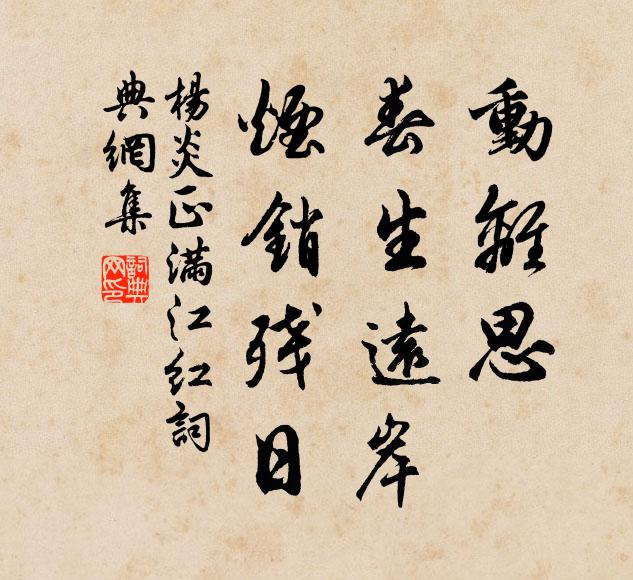 動離思
春生遠岸
煙銷残日
楊炎正滿江紅詞
典網集
詞典網印